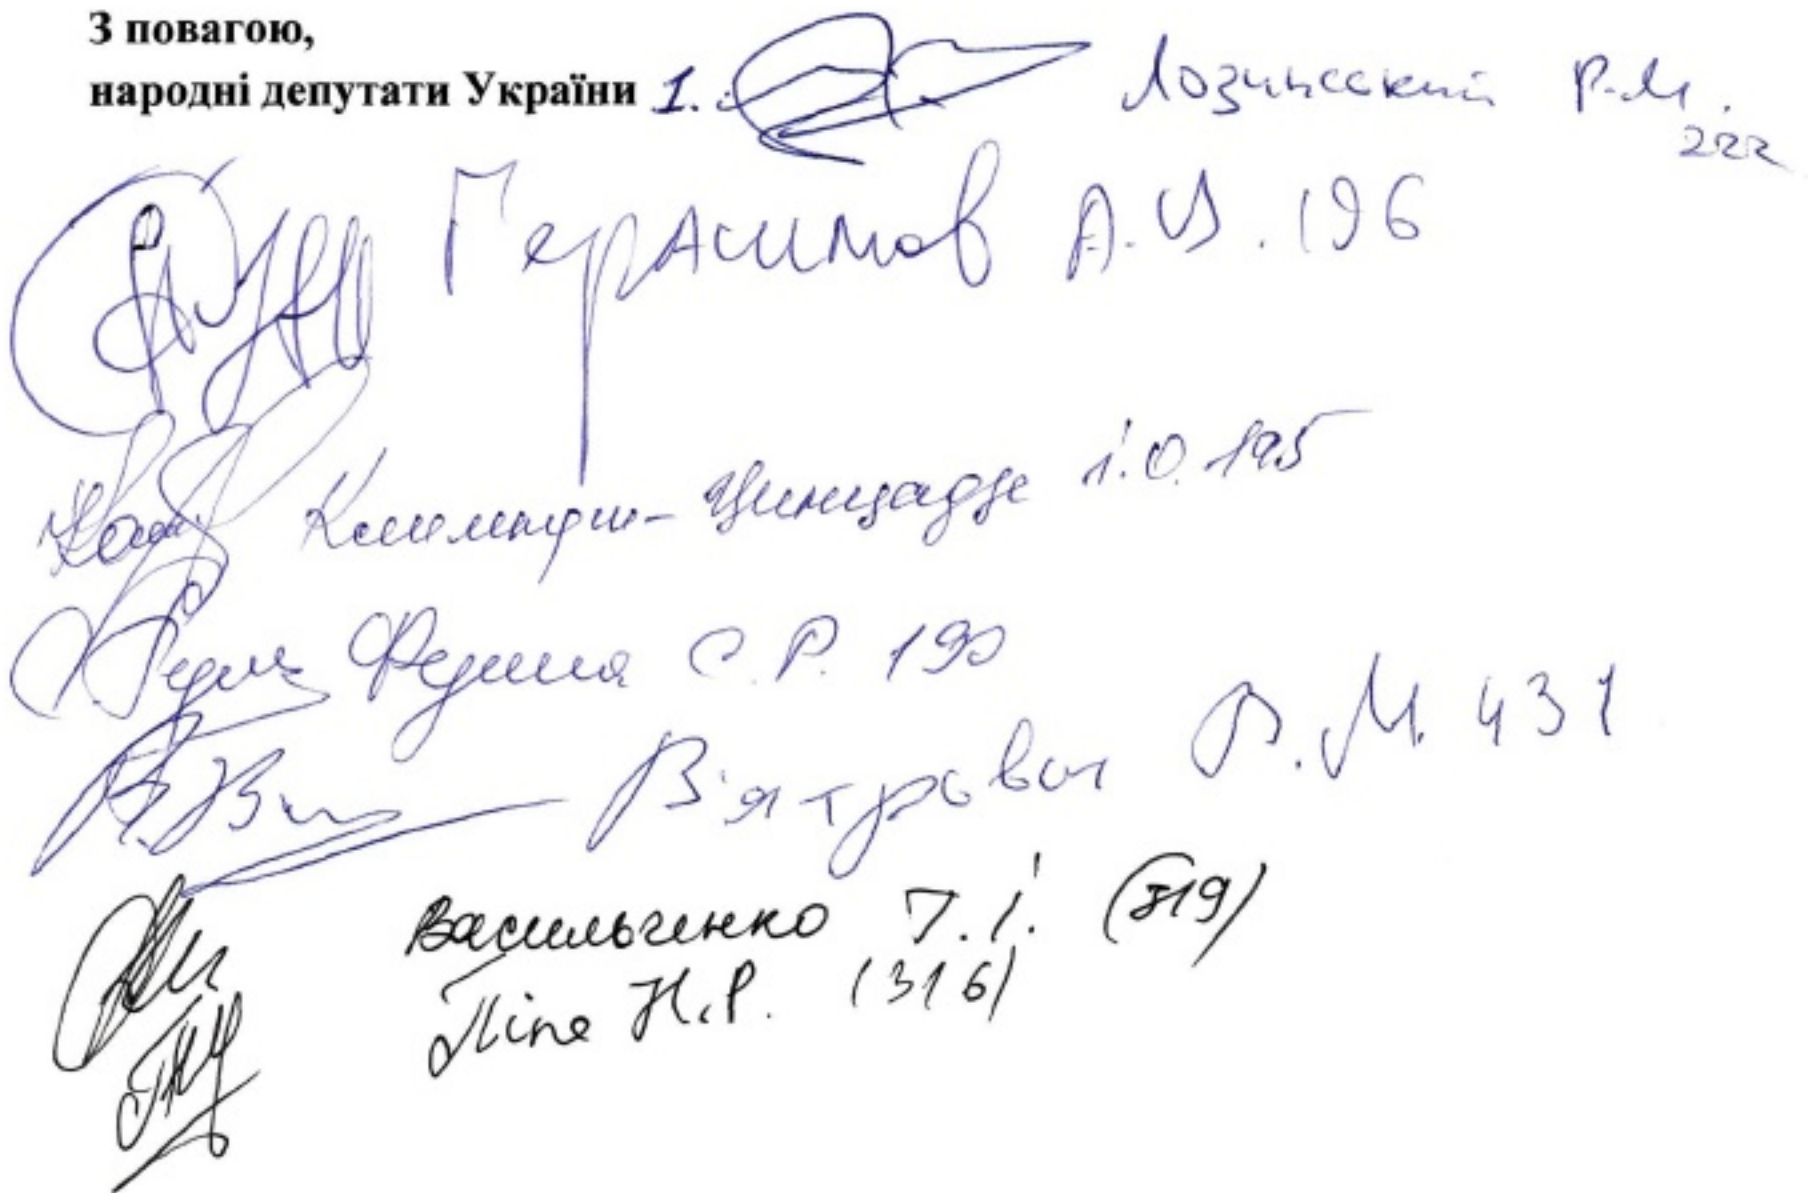 З повагою,
народні депутати України 1. Лозинский Р.М.
222
Герасимов А.В. 196
Климпуш-Цинцадзе І.О. 195
Федина С.Р. 190
В'ятрович В.М. 431
Васильченко Г.І. (319)
Піпа Н.Р. (316)